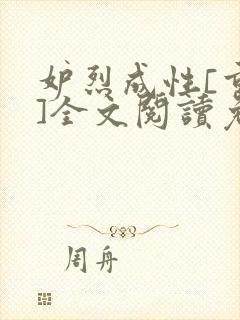 妒烈成性[
]全文閱讀
周舟